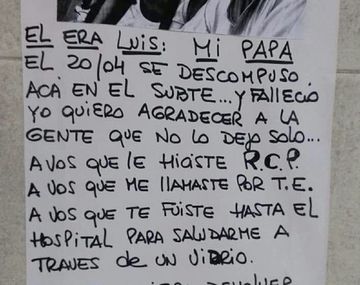 EL ERA LUIS: MI PAPA
EL 20/04 SE DESCOMPUSO
ACA EN EL SUBTE...Y FALLECIO
YO QUIERO AGRADECER A LA
GENTE QUE NO LO DEJO SOLO...
A VOS QUE LE HICISTE R.C.P.
A VOS QUE ME LLAMASTE POR T.E.
A VOS QUE TE FUISTE HASTA EL
HOSPITAL PARA SALUDARME A
TRAVES DE UN VIDRIO.
DEVOLVER